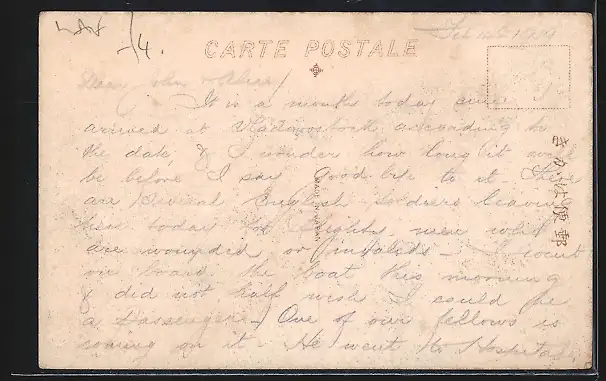 -/4.
Feb 14th 1919
CARTE POSTALE
Dear John &
It is a months today since
arrived at Vladivostock according to
the date, & I wonder how long it will
be before I say Good bye to it. There
are several English soldiers leaving
here today for Blighty. men who
are wounded or invalids - I went
on board the boat this morning
& did not half wish I could be
a passenger. One of our fellows is
coming on it. He went to Hospital
きかは便郵
MADE IN JAPAN